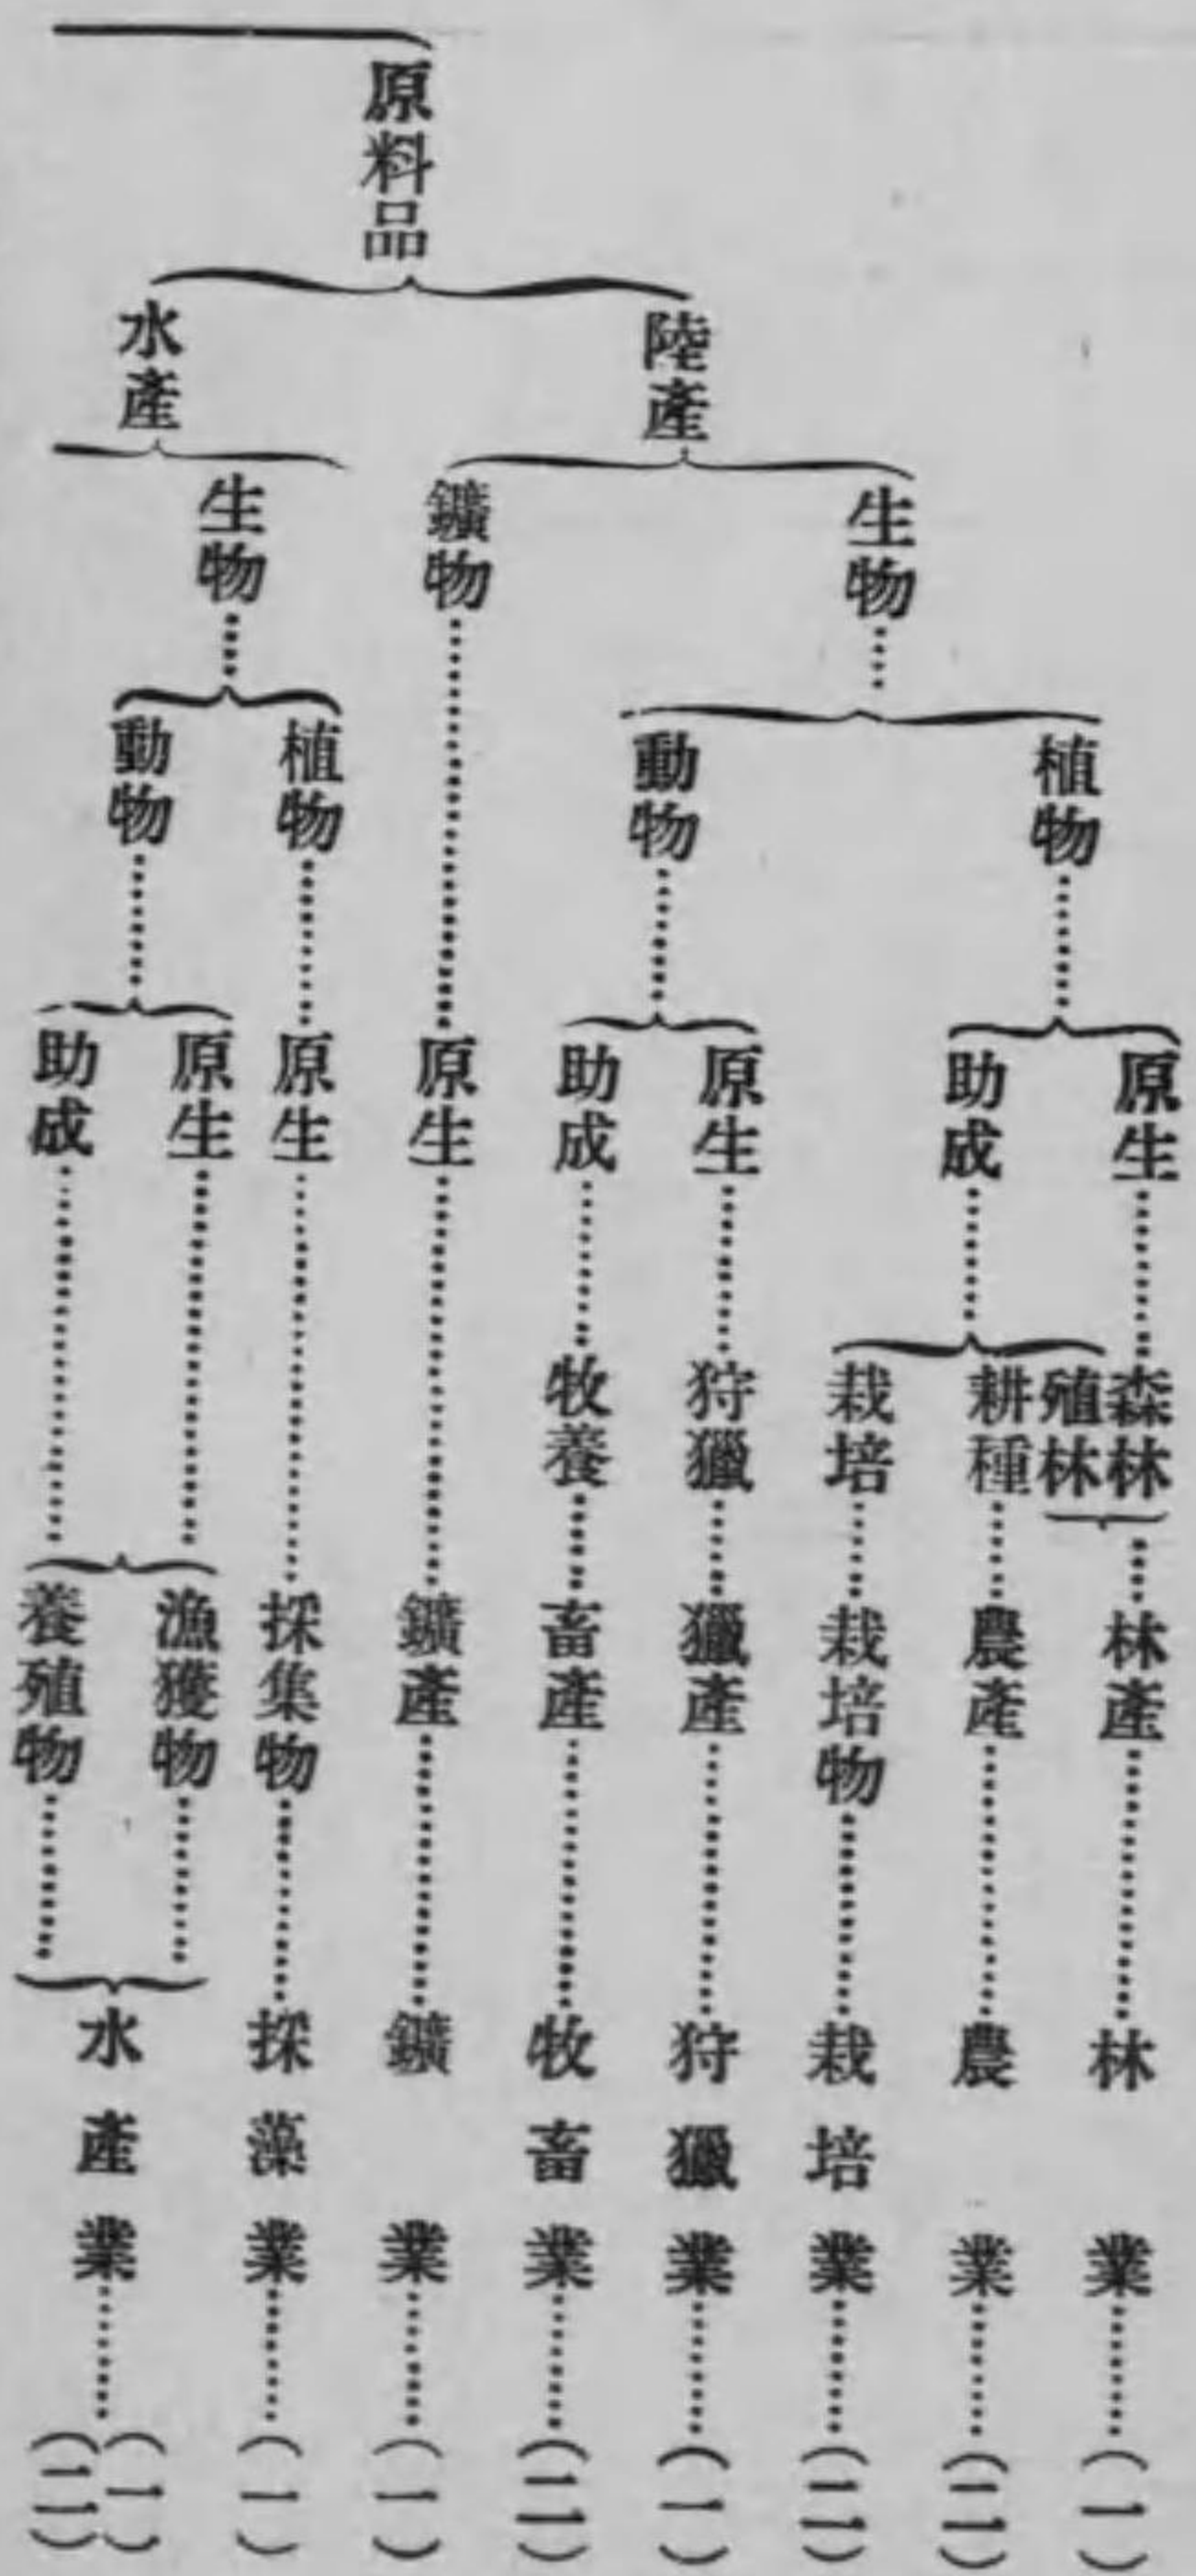 原料品
陸產
生物
植物
原生
森林
林產
林業
(一)
助成
殖林
耕種
農產
農業
(二)
栽培
栽培物
栽培業
(二)
動物
原生
狩獵
獵產
狩獵業
(一)
助成
牧養
畜產
牧畜業
(二)
鑛物
原生
鑛產
鑛業
(一)
水產
生物
植物
原生
採集物
採藻業
(一)
動物
原生
漁獲物
助成
養殖物
水產業
(一)
(二)